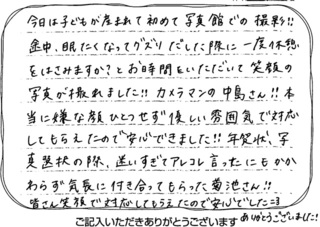 今日は子どもが産まれて初めて写真館での撮影!!
途中、眠たくなってグズりだした際に一度休憩
をはさみますか?とお時間をいただいて笑顔の
写真が撮れました!! カメラマンの中島さん!! 本
当に嫌な顔ひとつせず優しい雰囲気で対応
してもらえたので安心できました!! 年賀状、写
真選択の際、迷いすぎてアレコレ言ったにもかか
わらず気長に付き合ってもらった菊池さん!!
皆さん笑顔で対応してもらえたので安心でした
ありがとうございました!
ご記入いただきありがとうございます